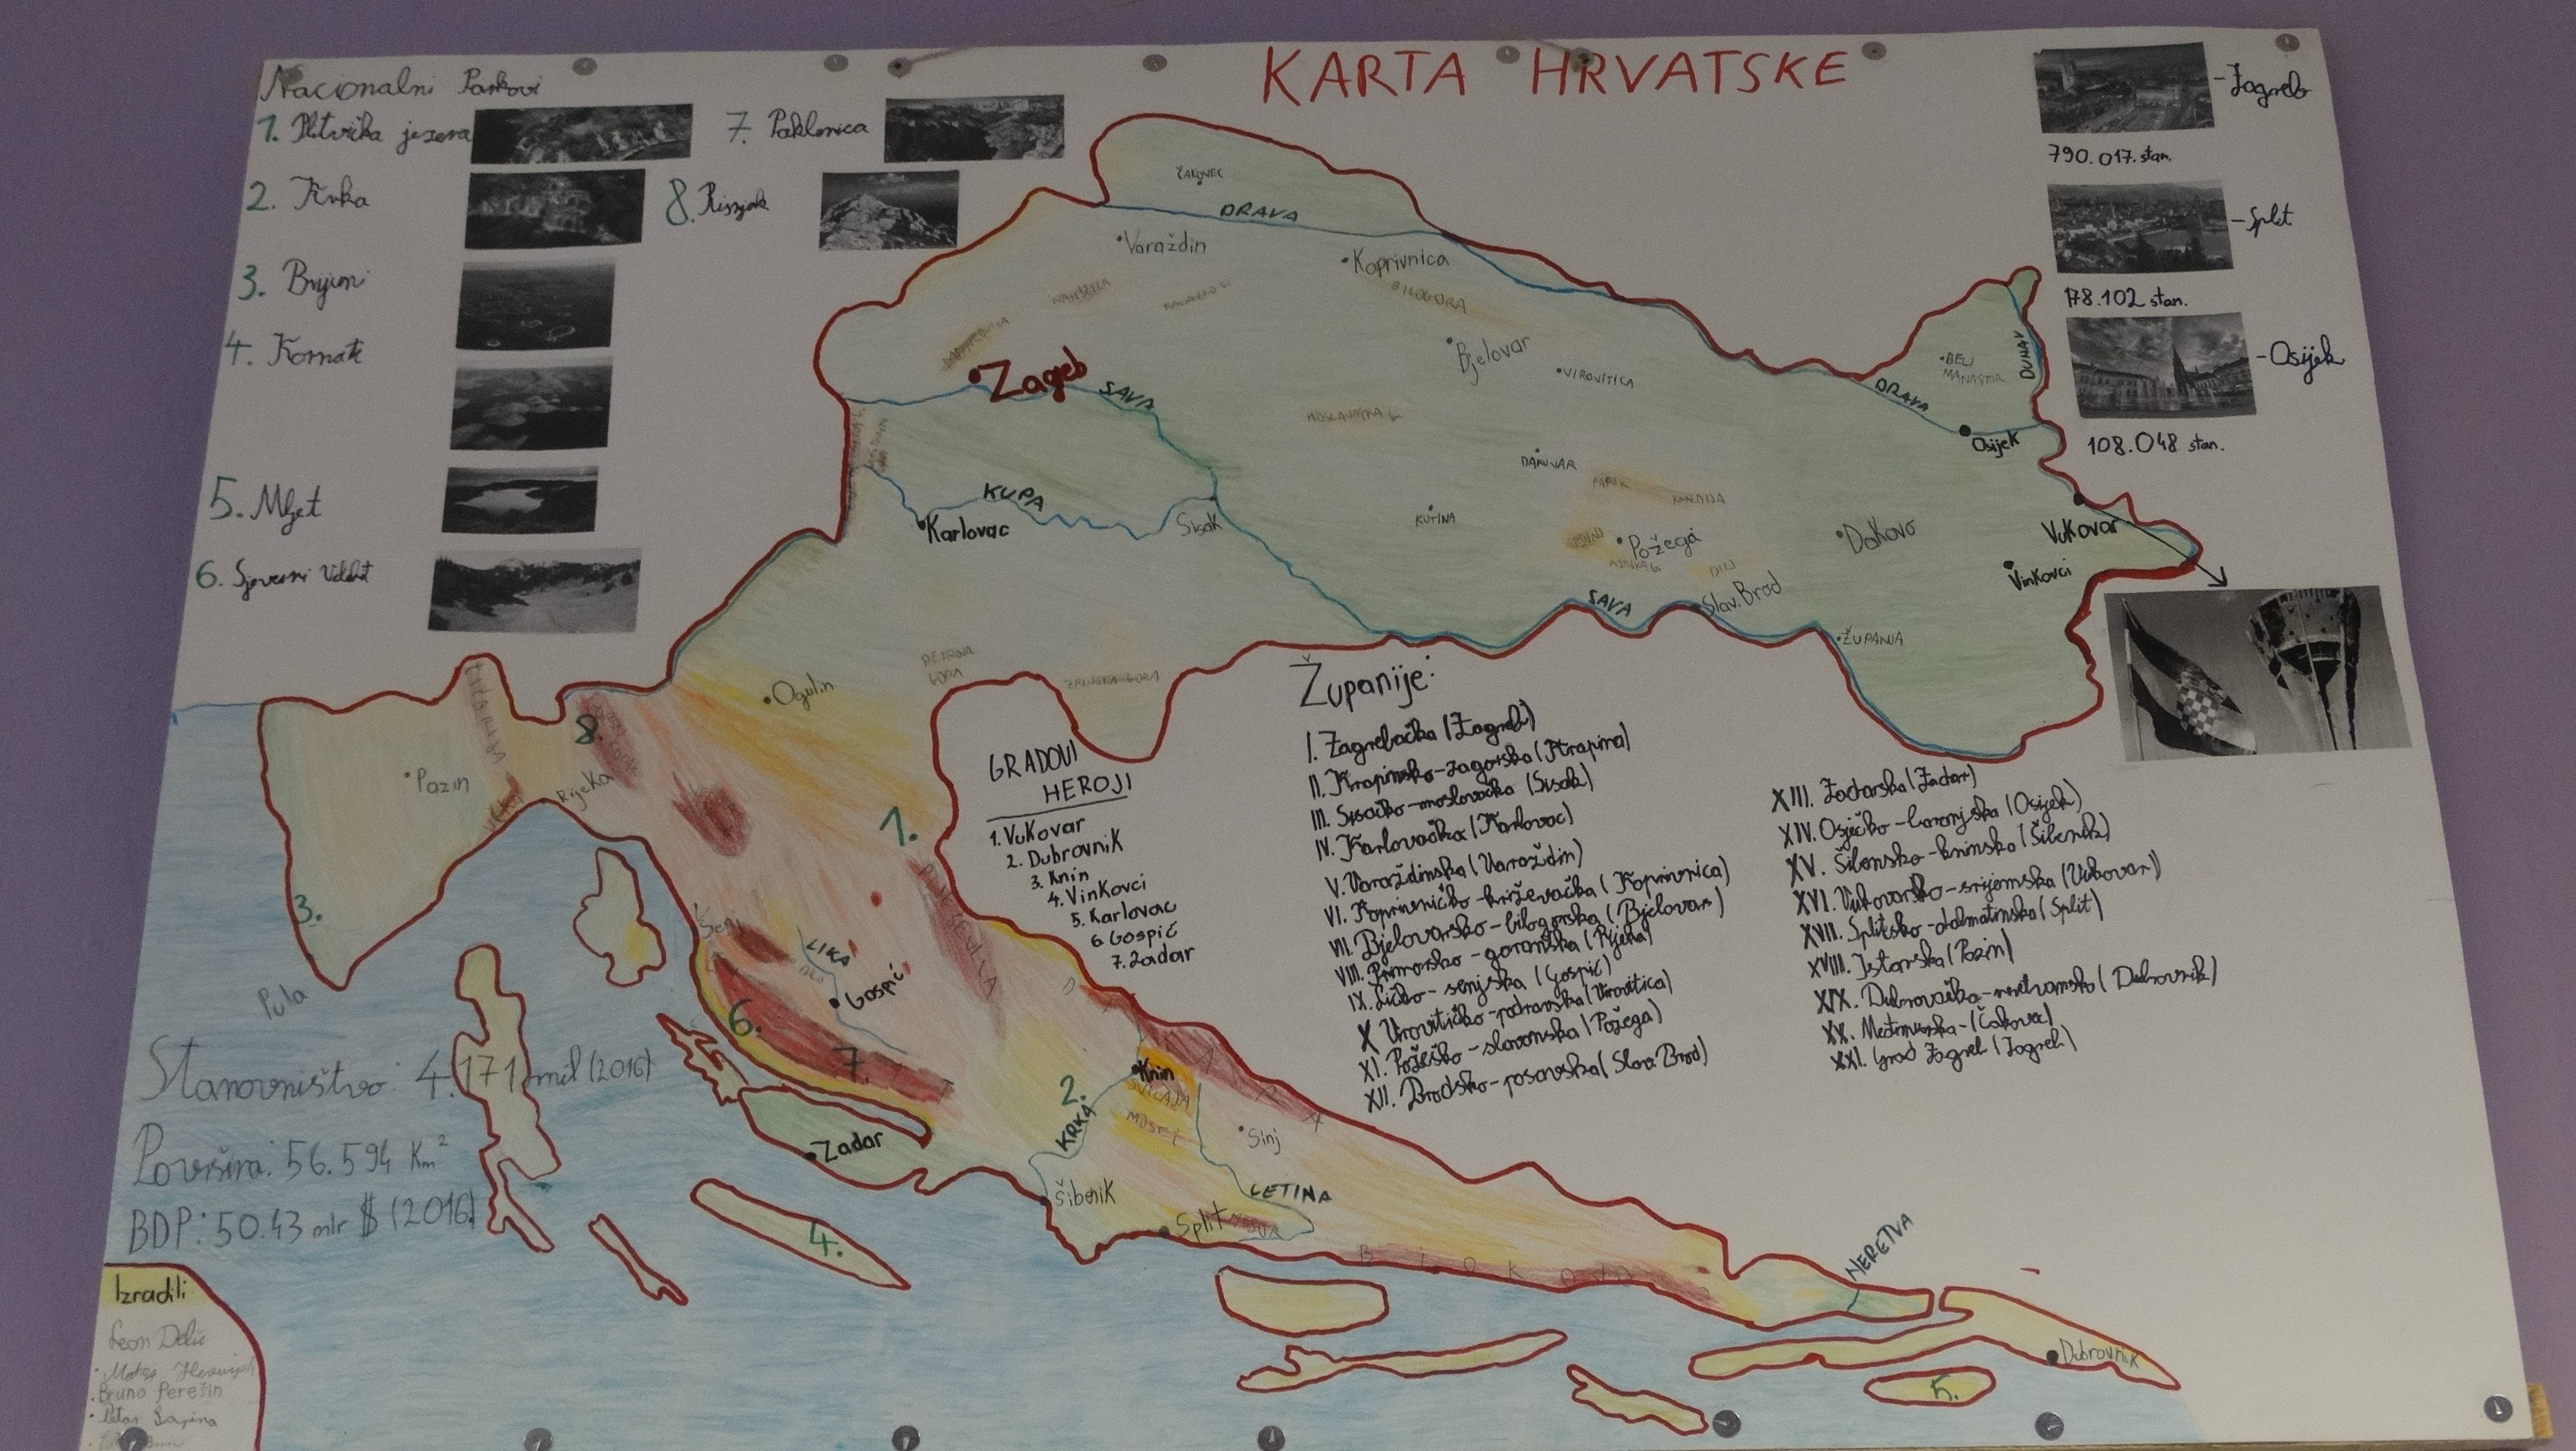 KARTA HRVATSKE
Nacionalni Parkovi
1. Plitvička jezera
2. Krka
3. Brijuni
4. Kornati
5. Mljet
6. Sjeverni Velebit
7. Paklenica
8. Risnjak
-Zagreb
790.017. stan.
-Split
178.102 stan.
-Osijek
108.048 stan.
ČAKOVEC
DRAVA
Varaždin
Koprivnica
BILOGORA
Bjelovar
VIROVITICA
Zagreb
SAVA
MOSLAVAČKA G.
BELI
MANASTIR
DUNAV
DRAVA
Osijek
DARUVAR
PAPUK
KUPA
Karlovac
Sisak
KUTINA
Požega
DILJ
Đakovo
Vukovar
Vinkovci
SAVA
Slav. Brod
ŽUPANJA
Ogulin
PETROVA
GORA
ZRINSKA GORA
Pazin
Rijeka
8.
1.
3.
Pula
Senj
LIKA
Gospić
PLJEŠEVICA
6.
7.
DINARA
Zadar
2.
KRKA
Knin
SVILAJA
MOSEĆ
Sinj
CETINA
Šibenik
Split
4.
BIOKOVO
NERETVA
Dubrovnik
5.
GRADOVI
HEROJI
1. Vukovar
2. Dubrovnik
3. Knin
4. Vinkovci
5. Karlovac
6 Gospić
7. Zadar
Županije:
I. Zagrebačka (Zagreb)
II. Krapinsko-zagorska (Krapina)
III. Sisačko-moslovačka (Sisak)
IV. Karlovačka (Karlovac)
V. Varaždinska (Varaždin)
VI. Koprivničko-križevačka (Koprivnica)
VII. Bjelovarsko-bilogorska (Bjelovar)
VIII. Primorsko-goranska (Rijeka)
IX. Ličko-senjska (Gospić)
X Virovitičko-podravska (Virovitica)
XI. Požeško-slavonska (Požega)
XII. Brodsko-posavska (Slav. Brod)
XIII. Zadarska (Zadar)
XIV. Osječko-baranjska (Osijek)
XV. Šibensko-kninska (Šibenik)
XVI. Vukovarsko-srijemska (Vukovar)
XVII. Splitsko-dalmatinska (Split)
XVIII. Istarska (Pazin)
XIX. Dubrovačko-neretvanska (Dubrovnik)
XX. Međimurska-(Čakovec)
XXI. Grad Zagreb (Zagreb)
Stanovništvo: 4.171 mil (2016)
Površina: 56.594 Km²
BDP: 50.43 mlr $ (2016)
Izradili
Leon Delić
Bruno Perešin